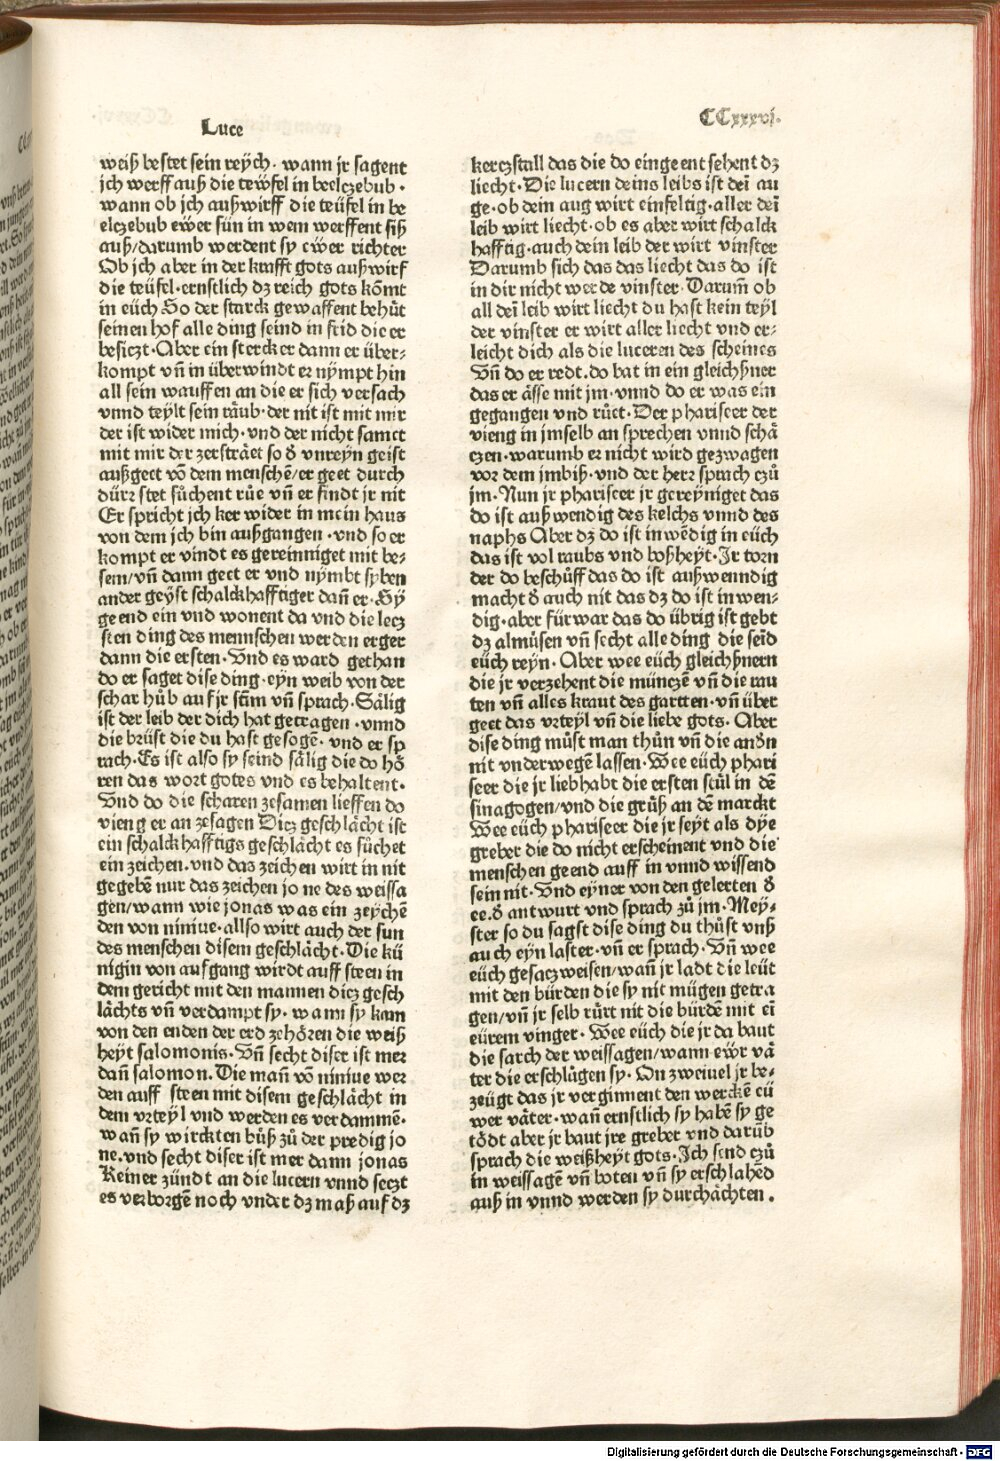 Luce
CCxxxvj.
weiß bestet sein reÿch· wann jr sagent
jch werff auß die teẅfel in beelczebub·
wann ob jch außwirff die teüfel in be
elczebub eẅer sün in wem werffent siß
auß/darumb werdent sy eẅer richter
Ob jch aber in der krafft gots außwirf
die teüfel·ernstlich dz reich gots kom̄t
in eüch So der starck gewaffent behůt
seinen hof alle ding seind in frid die er
besiczt·Aber ein stercker dann er über⸗
kompt vn̄ in überwindt er nÿmpt hin
all sein wauffen an die er sich versach
vnnd teÿlt sein räub·der nit ist mit mir
der ist wider mich·vnd der nicht samet
mit mir der zersträet so d̄ vnreÿn geist
außgeet vō dem menschē/er geet durch
dürr stet sůchent rüe vn̄ er findt jr nit
Er spricht jch ker wider in mein haus
von dem jch bin außgangen·vnd so er
kompt er vindt es gereinniget mit be⸗
sem/vn̄ dann geet er vnd nÿmbt syben
ander geÿst schalckhafftiger dan̄ er·Sÿ
geend ein vnd wonent da vnd die lecz
sten ding des mennschen werden erger
dann die ersten·Vnd es ward gethan
do er saget dise ding·eyn weib von der
schar hůb auf jr stim̄ vn̄ sprach·Sälig
ist der leib der dich hat getragen·vnnd
die brüst die du hast gesogē·vnd er sp
rach·Es ist also sy seind sälig die do hö
ren das wort gotes vnd es behaltent·
Vnd do die scharen zesamen lieffen do
vieng er an zesagen Dicz geschlächt ist
ein schalckhafftigs geschlächt es sůchet
ein zeichen·vnd das zeichen wirt in nit
gegebē nur das zeichen jo ne des weissa
gen/wann wie jonas was ein zeÿchē
den von niniue·allso wirt auch der sun
des menschen disem geschlächt·Die kü
nigin von aufgang wirdt auff steen in
dem gericht mit den mannen dicz gesch
lächts vn̄ verdampt sy·wann sy kam
von den enden der erd zehören die weiß
heyt salomonis·Vn̄ secht diser ist mer
dan̄ salomon·Die man̄ vō niniue wer
den auff steen mit disem geschlächt in
dem vrteÿl vnd werden es verdammē·
wan̄ sy wirckten bůß zů der predig jo
ne·vnd secht diser ist mer dann jonas
Keiner zündt an die lucern vnnd seczt
es verborgē noch vnder dz maß auf dz
kerczstall das die do eingeent sehent dz
liecht·Die lucern deins leibs ist dei̅ au
ge·ob dein aug wirt einfeltig·aller dei̅
leib wirt liecht·ob es aber wirt schalck
hafftig·auch dein leib der wirt vinster
Darumb sich das das liecht das do ist
in dir nicht werde vinster·Darum̄ ob
all dei̅ leib wirt liecht du hast kein teÿl
der vinster er wirt aller liecht vnd er⸗
leicht dich als die luceren des scheines
Vn̄ do er redt·do bat in ein gleichßner
das er ässe mit jm·vnnd do er was ein
gegangen vnd růet·Der phariseer der
vieng in jmselb an sprechen vnnd schä
czen·warumb er nicht wird gezwagen
vor dem imbiß·vnd der herr sprach czů
jm·Nun jr phariseer jr gereÿniget das
do ist außwendig des kelchs vnnd des
naphs Aber dz do ist inwēdig in eüch
das ist vol raubs vnd boßheyt·Ir torn
der do beschůff das do ist außwenndig
macht d̄ auch nit das dz do ist in wen⸗
dig·aber fürwar das do übrig ist gebt
dz almůsen vn̄ secht alle ding die sei̅d
eüch reÿn·Aber wee eüch gleichßnern
die jr verzehent die münczē vn̄ die rau
ten vn̄ alles kraut des gartten·vn̄ über
geet das vrteyl vn̄ die liebe gots·Aber
dise ding můst man thůn vn̄ die and̄n
nit vnderwegē lassen·Wee eüch phari
seer die jr liebhabt die ersten stül in dē
sinagogen/vnd die grůß an dē marckt
Wee eüch phariseer die jr seyt als dÿe
greber die do nicht erscheinent vnd die
menschen geend auff in vnnd wissend
sein nit·Vnd eÿner von den gelerten d̄
ee·d̄ antwurt vnd sprach zů jm·Meÿ⸗
ster so du sagst dise ding du thůst vnß
auch eÿn laster·vn̄ er sprach·Vn̄ wee
eüch gesaczweisen/wan̄ jr ladt die leüt
mit den bürden die sy nit mügen getra
gen/vn̄ jr selb růrt nit die bürdē mit ei̅
eürem vinger·Wee eüch die jr da baut
die sarch der weissagen/wann eẅr vä
ter die erschlůgen sy·On zweiuel jr be⸗
zeügt das jr verginnent den werckē eü
wer väter·wan̄ ernstlich sy habē sy ge
tödt aber jr baut jre greber vnd darüb
sprach die weißheÿt gots·Ich send czů
in weissagē vn̄ boten vn̄ sy erschlahēd
auß in vnnd werden sy durchächten.
Digitalisierung gefördert durch die Deutsche Forschungsgemeinschaft · DFG